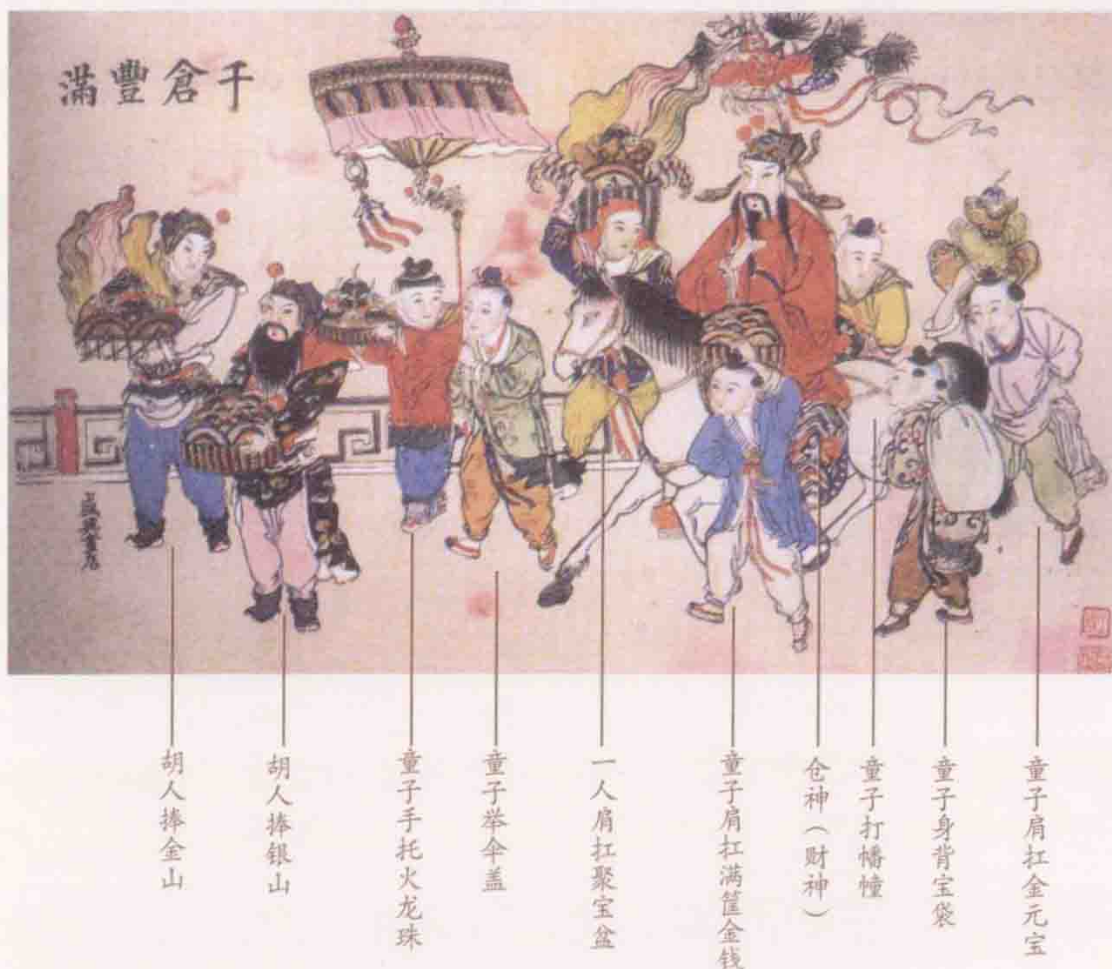 千倉豐滿
胡人捧金山
胡人捧银山
童子手托火龙珠
童子举伞盖
一人肩扛聚宝盆
童子肩扛满筐金钱
仓神（财神）
童子打幡幢
童子身背宝袋
童子肩扛金元宝